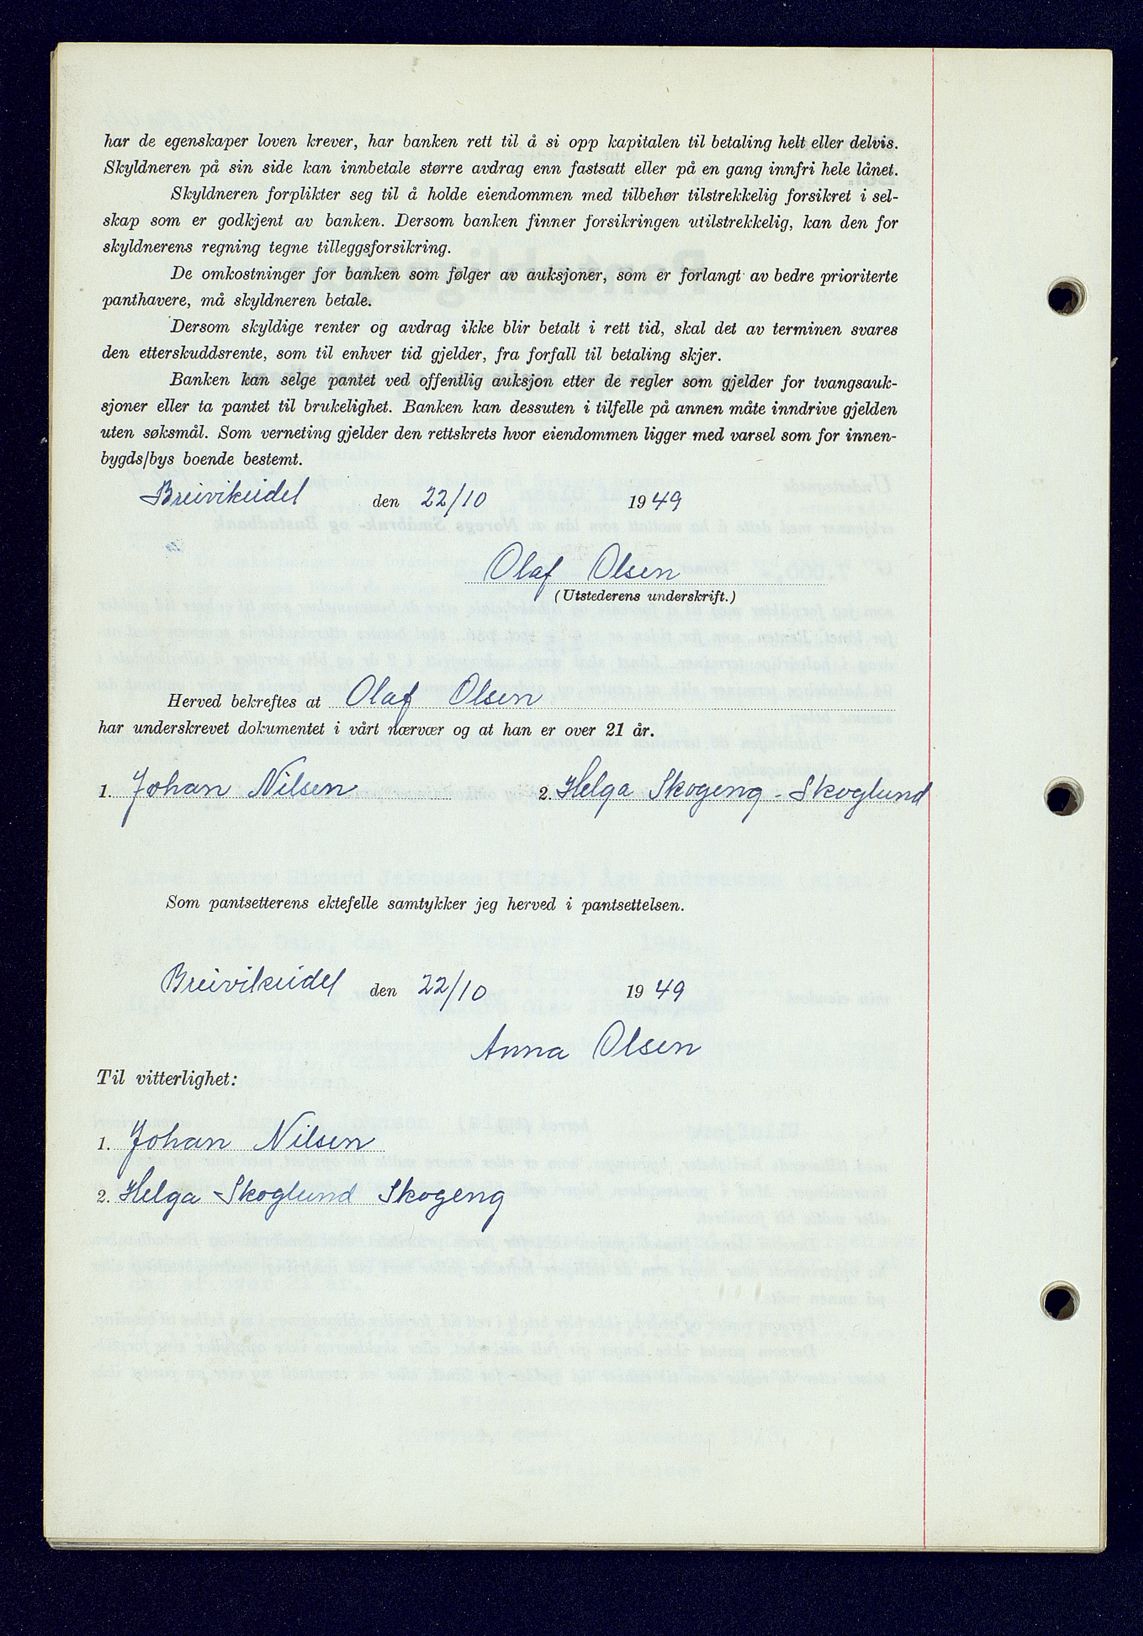 har de egenskaper loven krever, har banken rett til å si opp kapitalen til betaling helt eller delvis.
Skyldneren på sin side kan innbetale større avdrag enn fastsatt eller på en gang innfri hele lånet.
Skyldneren forplikter seg til å holde eiendommen med tilbehør tilstrekkelig forsikret i sel-
skap som er godkjent av banken. Dersom banken finner forsikringen utilstrekkelig, kan den for
skyldnerens regning tegne tilleggsforsikring.
De omkostninger for banken som følger av auksjoner, som er forlangt av bedre prioriterte
panthavere, må skyldneren betale.
Dersom skyldige renter og avdrag ikke blir betalt i rett tid, skal det av terminen svares
den etterskuddsrente, som til enhver tid gjelder, fra forfall til betaling skjer.
Banken kan selge pantet ved offentlig auksjon etter de regler som gjelder for tvangsauk-
sjoner eller ta pantet til brukelighet. Banken kan dessuten i tilfelle på annen måte inndrive gjelden
uten søksmål. Som verneting gjelder den rettskrets hvor eiendommen ligger med varsel som for innen-
bygds/bys boende bestemt.
Breivikeidet den 22/10 1949
Olaf Olsen
(Utstederens underskrift.)
Herved bekreftes at Olaf Olsen
har underskrevet dokumentet i vårt nærvær og at han er over 21 år.
1. Johan Nilsen 2. Helga Skogeng - Skoglund
Som pantsetterens ektefelle samtykker jeg herved i pantsettelsen.
Breivikeidet den 22/10 1949
Anna Olsen
Til vitterlighet:
1. Johan Nilsen
2. Helga Skoglund Skogeng